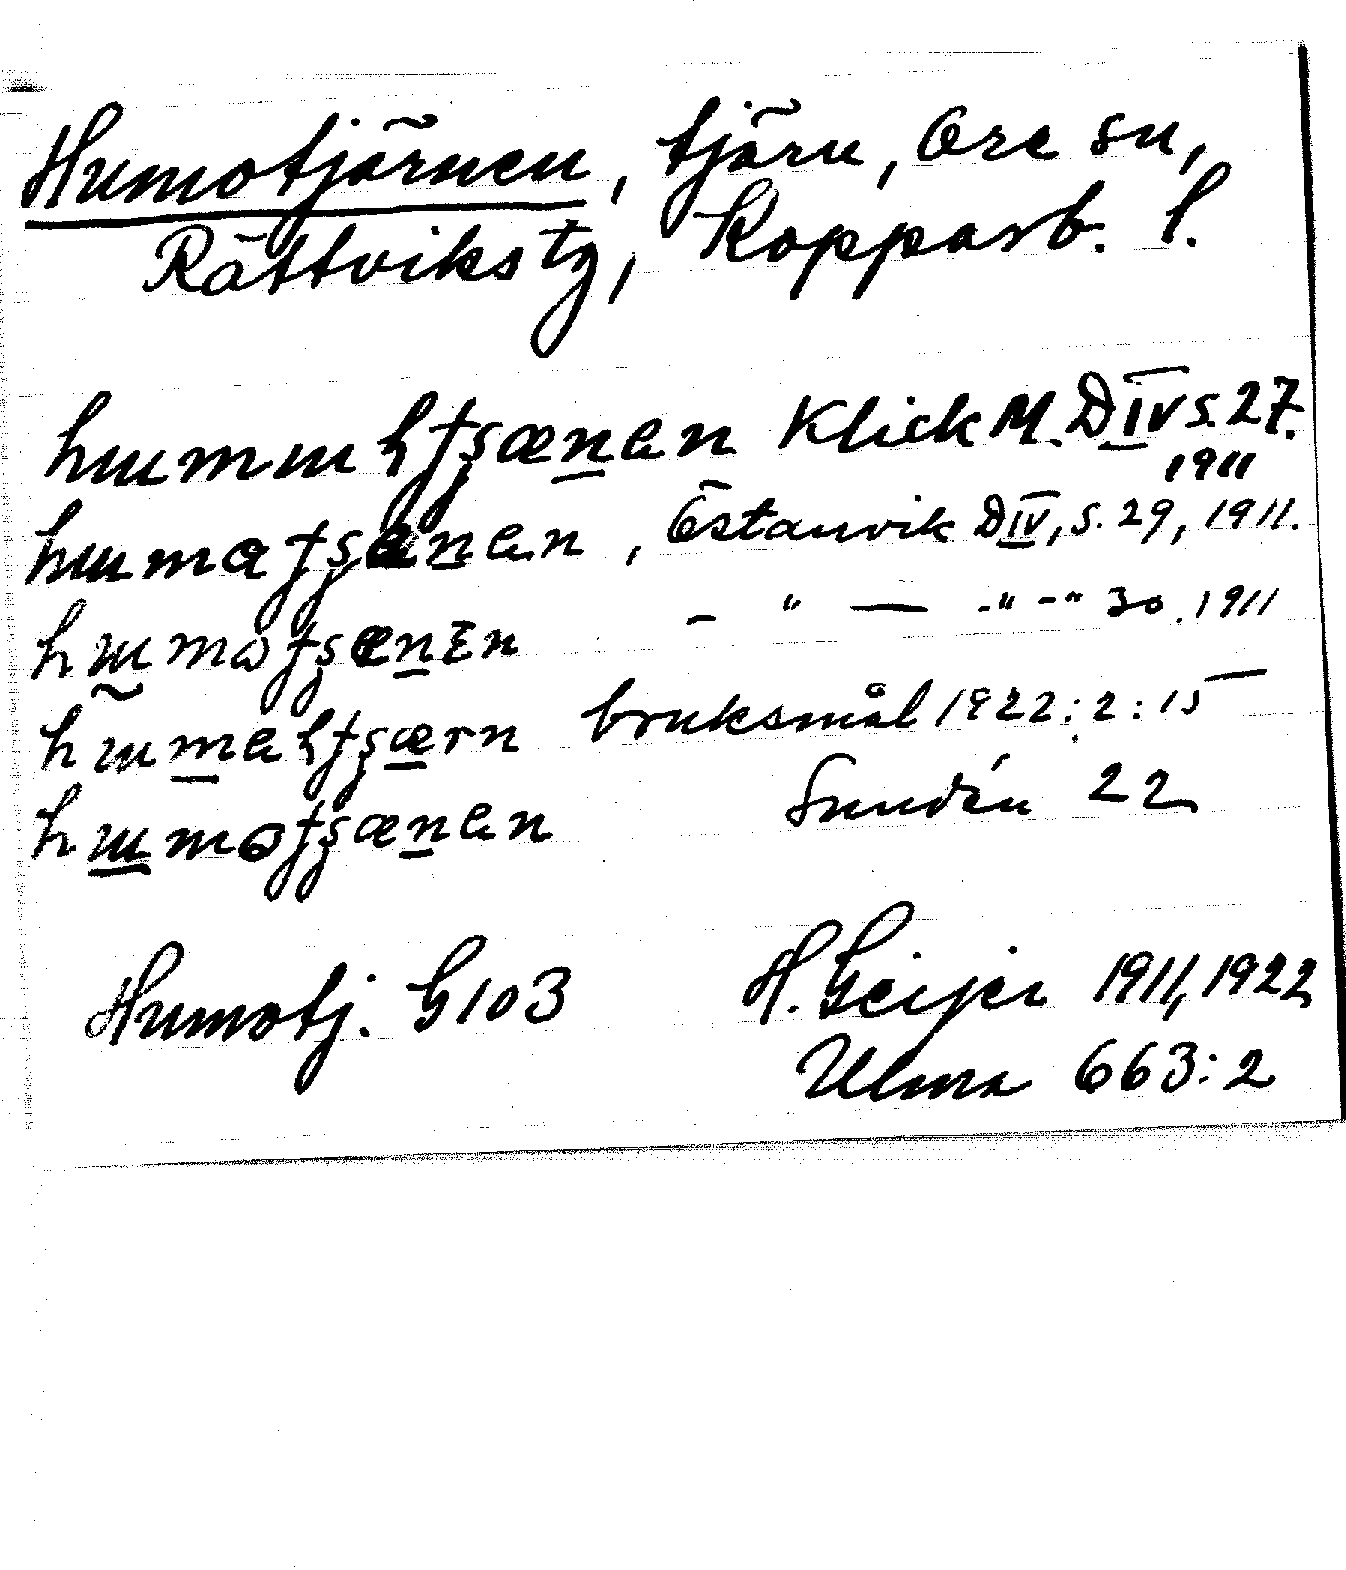 Humotjärnen, tjärn, Ore sn,
Rättviks tg, Kopparb. l.
Klick M. D IV s. 27.
1911
Östanvik D IV, s. 29, 1911.
- " — -"-" 30. 1911
bruksmål 1922:2:15
Sundén 22
Humotj. G103 H. Geijer 1911, 1922
Ulma 663:2